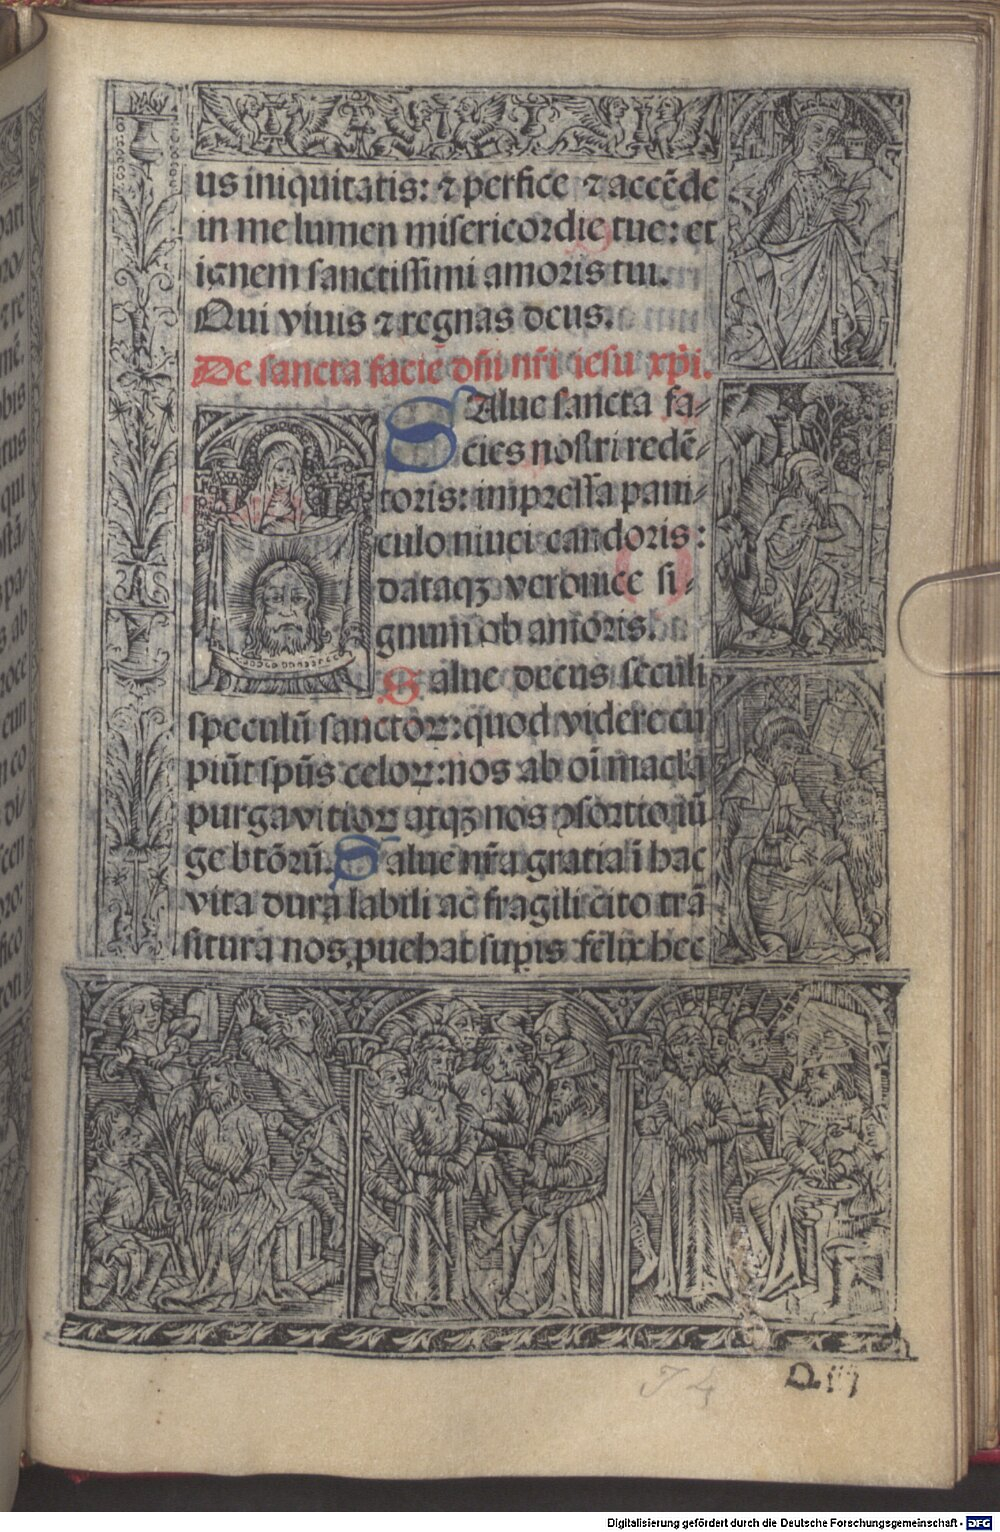 us iniquitatis: ⁊ perfice ⁊ accēde
in me lumen misericordie tue: et
ignem sanctissimi amoris tui.
Qui viuis ⁊ regnas deus.
De sancta facie dn̄i nr̄i iesu xp̄i.
SAlue sancta fa⸗
cies nostri redē⸗
toris: impressa pani⸗
culo niuei candoris:
dataqꝫ veronice si⸗
gnum ob amoris.
Salue decus seculi
speculū sanctoꝝ: quod videre cu
piūt spūs celoꝝ: nos ab oī macl'a
purga vitioꝝ atqꝫ nos ꝯsortio iū
ge btōrū. Salue nr̄a gratia ī hac
vita dura labili ac fragili cito trā
situra nos puehat supis felix hec
Q iij
J 4
Digitalisierung gefördert durch die Deutsche Forschungsgemeinschaft - DFG